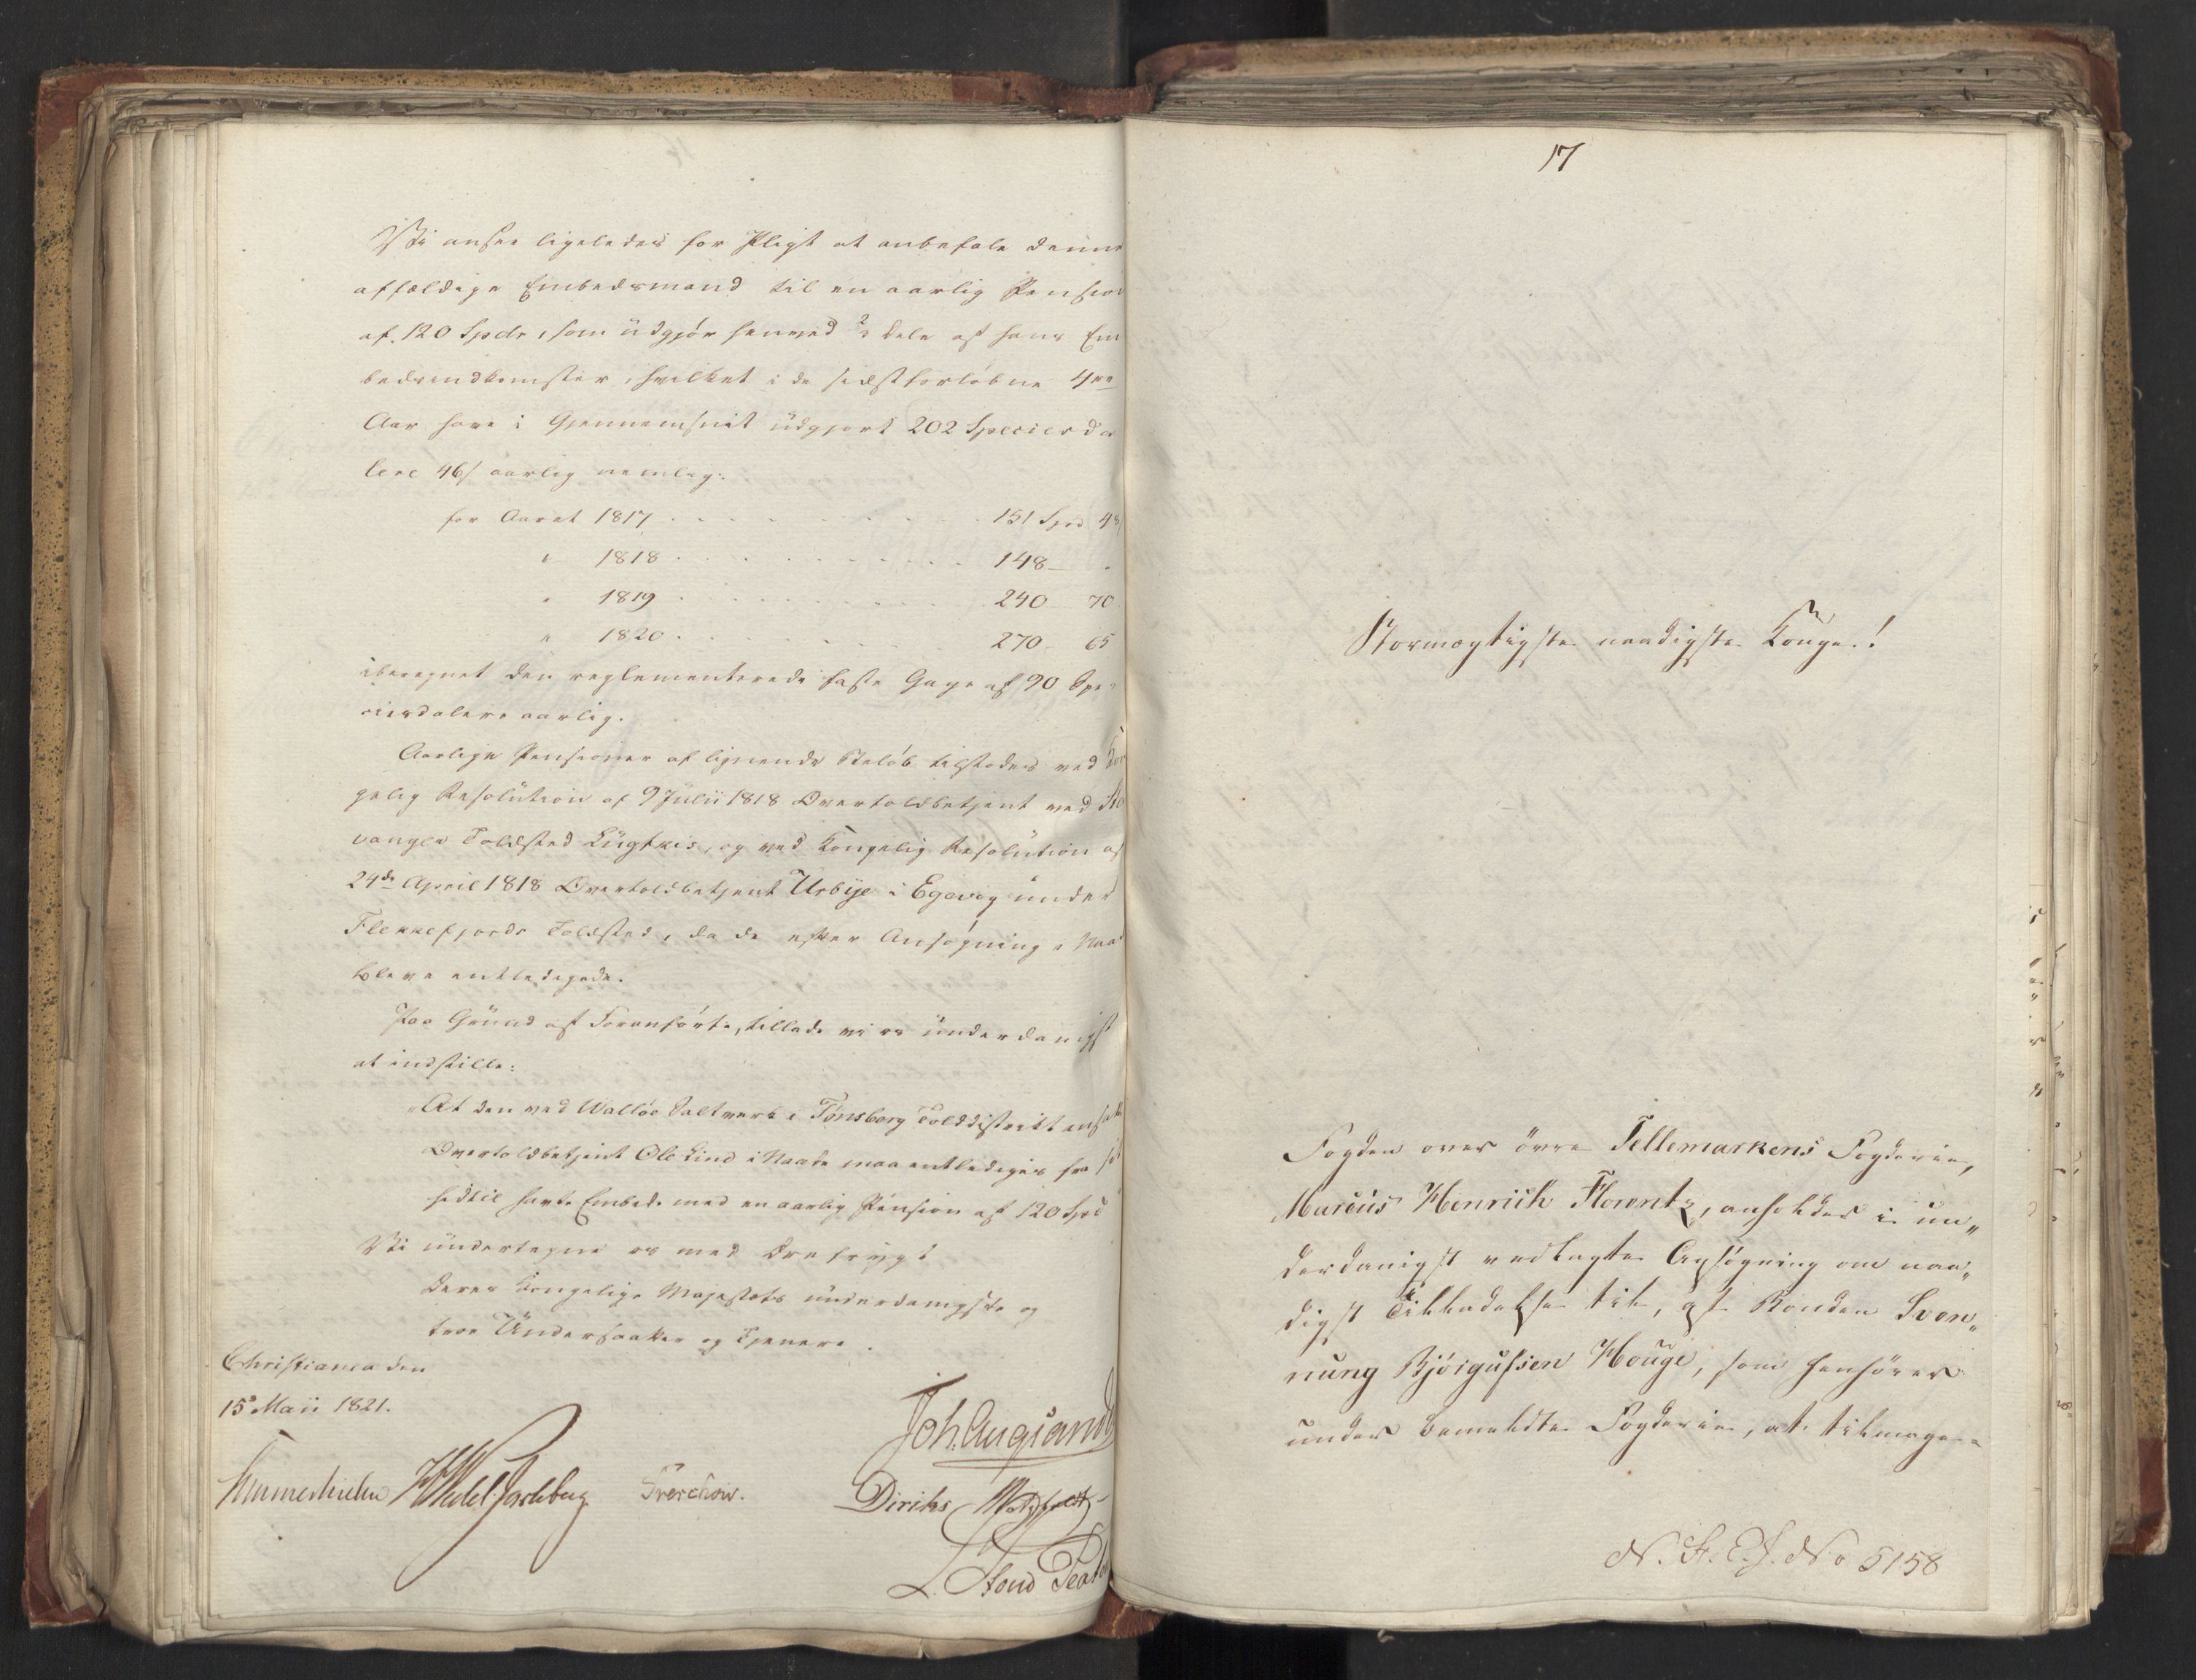 Vi ansee ligeledes for Pligt at anbefale denne
affældige Embedsmand til en aarlig Pension
af 120 Spdr, som üdgjør henved ⅔ dele af hans Em
bedsindkomster, hvilket i de sidstforløbne 4re
Aar have i Gjennemsnit üdgjort 202 Speciesda
lere 46/ aarlig nemlig:
for Aaret 1817 . . . . . . . . 151 Spd 48/
" 1818 . . . . . . . . 148 — "
" 1819 . . . . . . . . 240 — 70
" 1820 . . . . . . . . 270 — 65
iberegnet den reglementerede faste Gage af 90 Spe
ciesdalere aarlig.
Aarlige Pensioner af lignende Beløb tilstodes ved Kon
gelig Resolütion af 9 Julii 1818 Overtoldbetjent ved Sta
vanger Toldsted Lügtkis, og ved Kongelig Resolütion af
24de April 1818 Overtoldbetjent Urbye i Egevog ünder
Flekkefjords Toldsted, da de efter Ansøgning i Naade
bleve entledigede.
Paa Grund af Foranførte, tillade vi os ünderdanigst
at indstille:
"At den ved Walløe Saltverk i Tønsberg Tolddistrikt ansatte
Overtoldbetjent Ole Lind i Naade maa entlediges fra sit
hidtil havte Embede med en aarlig Pension af 120 Spd
Vi ündertegne os med Ærefrygt
Deres Kongelige Majestæts ünderdanigste og
troe Ündersaatter og Tjenere.
Christiania den
15 Maii 1821.
Joh. Aug Sand
Sommerhielm HWedel Jarlsberg Treschow. Diriks Motzfeldt
L. Stoud Platou
17
Stormægtigste naadigste Konge!
Fogden over övre Tellemarkens Fogderie,
Marcus Henrich Florentz, anholder i un„
derdanigst vedlagte Ansögning om naa„
digst Tilladelse til, af Bonden Sven„
nung Bjørgulsen Houge, som henhörer
under bemeldte Fogderie, at tilmage-
N. F. E. J. No 5158